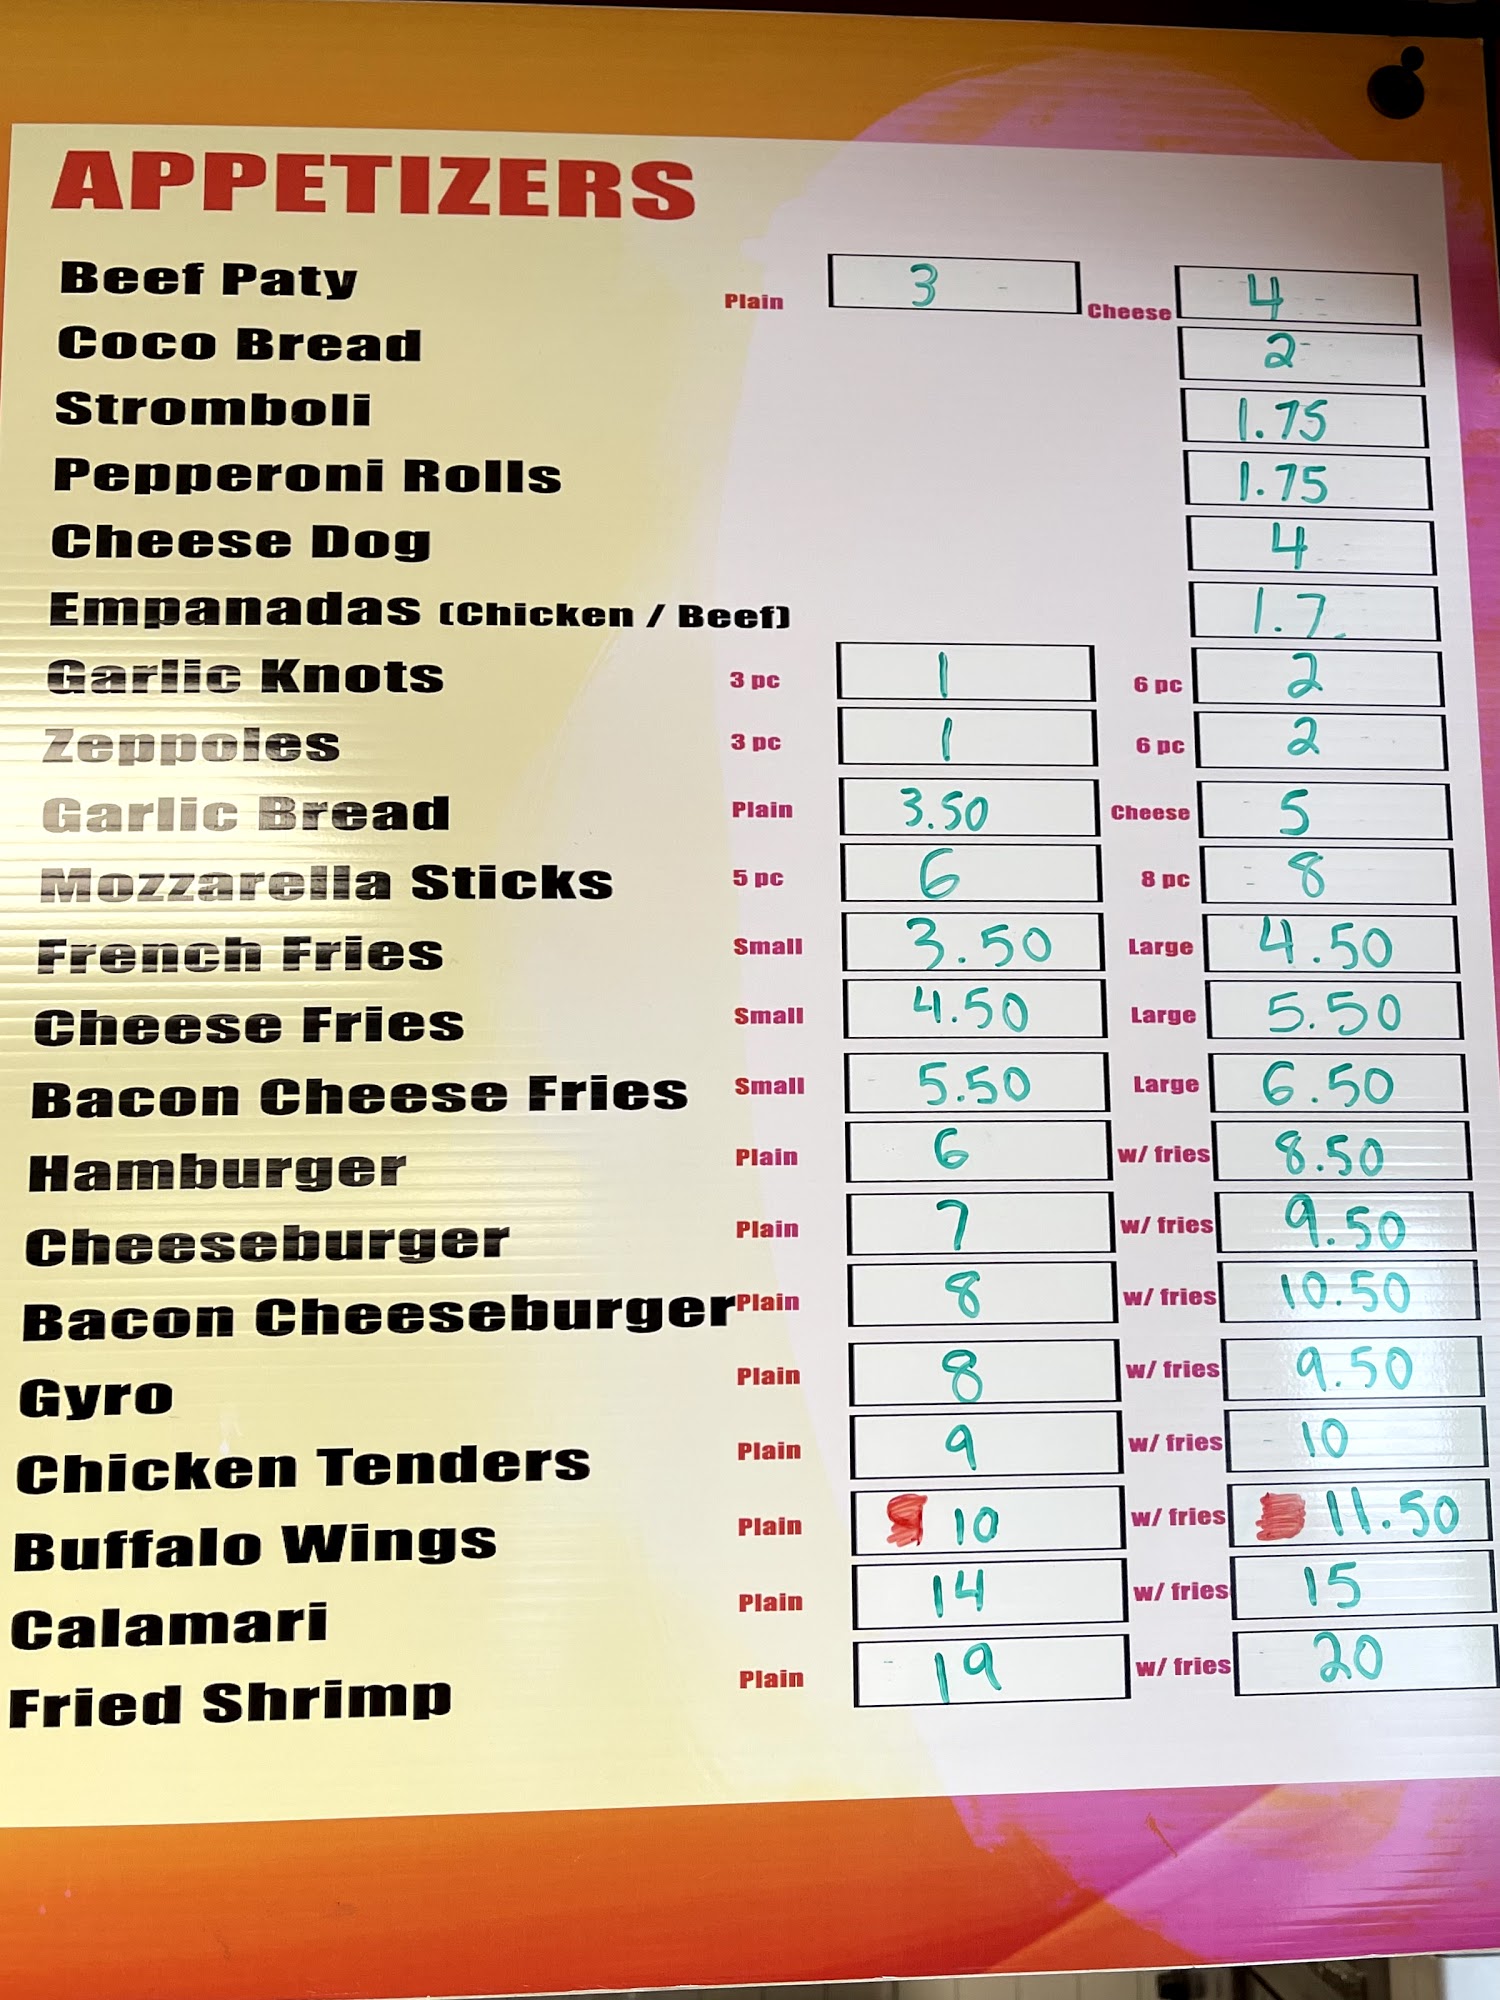 APPETIZERS
Beef Paty Plain 3 Cheese 4
Coco Bread 2
Stromboli 1.75
Pepperoni Rolls 1.75
Cheese Dog 4
Empanadas (Chicken / Beef) 1.7
Garlic Knots 3 pc 1 6 pc 2
Zeppoles 3 pc 1 6 pc 2
Garlic Bread Plain 3.50 Cheese 5
Mozzarella Sticks 5 pc 6 8 pc 8
French Fries Small 3.50 Large 4.50
Cheese Fries Small 4.50 Large 5.50
Bacon Cheese Fries Small 5.50 Large 6.50
Hamburger Plain 6 w/ fries 8.50
Cheeseburger Plain 7 w/ fries 9.50
Bacon Cheeseburger Plain 8 w/ fries 10.50
Gyro Plain 8 w/ fries 9.50
Chicken Tenders Plain 9 w/ fries 10
Buffalo Wings Plain 10 w/ fries 11.50
Calamari Plain 14 w/ fries 15
Fried Shrimp Plain 19 w/ fries 20